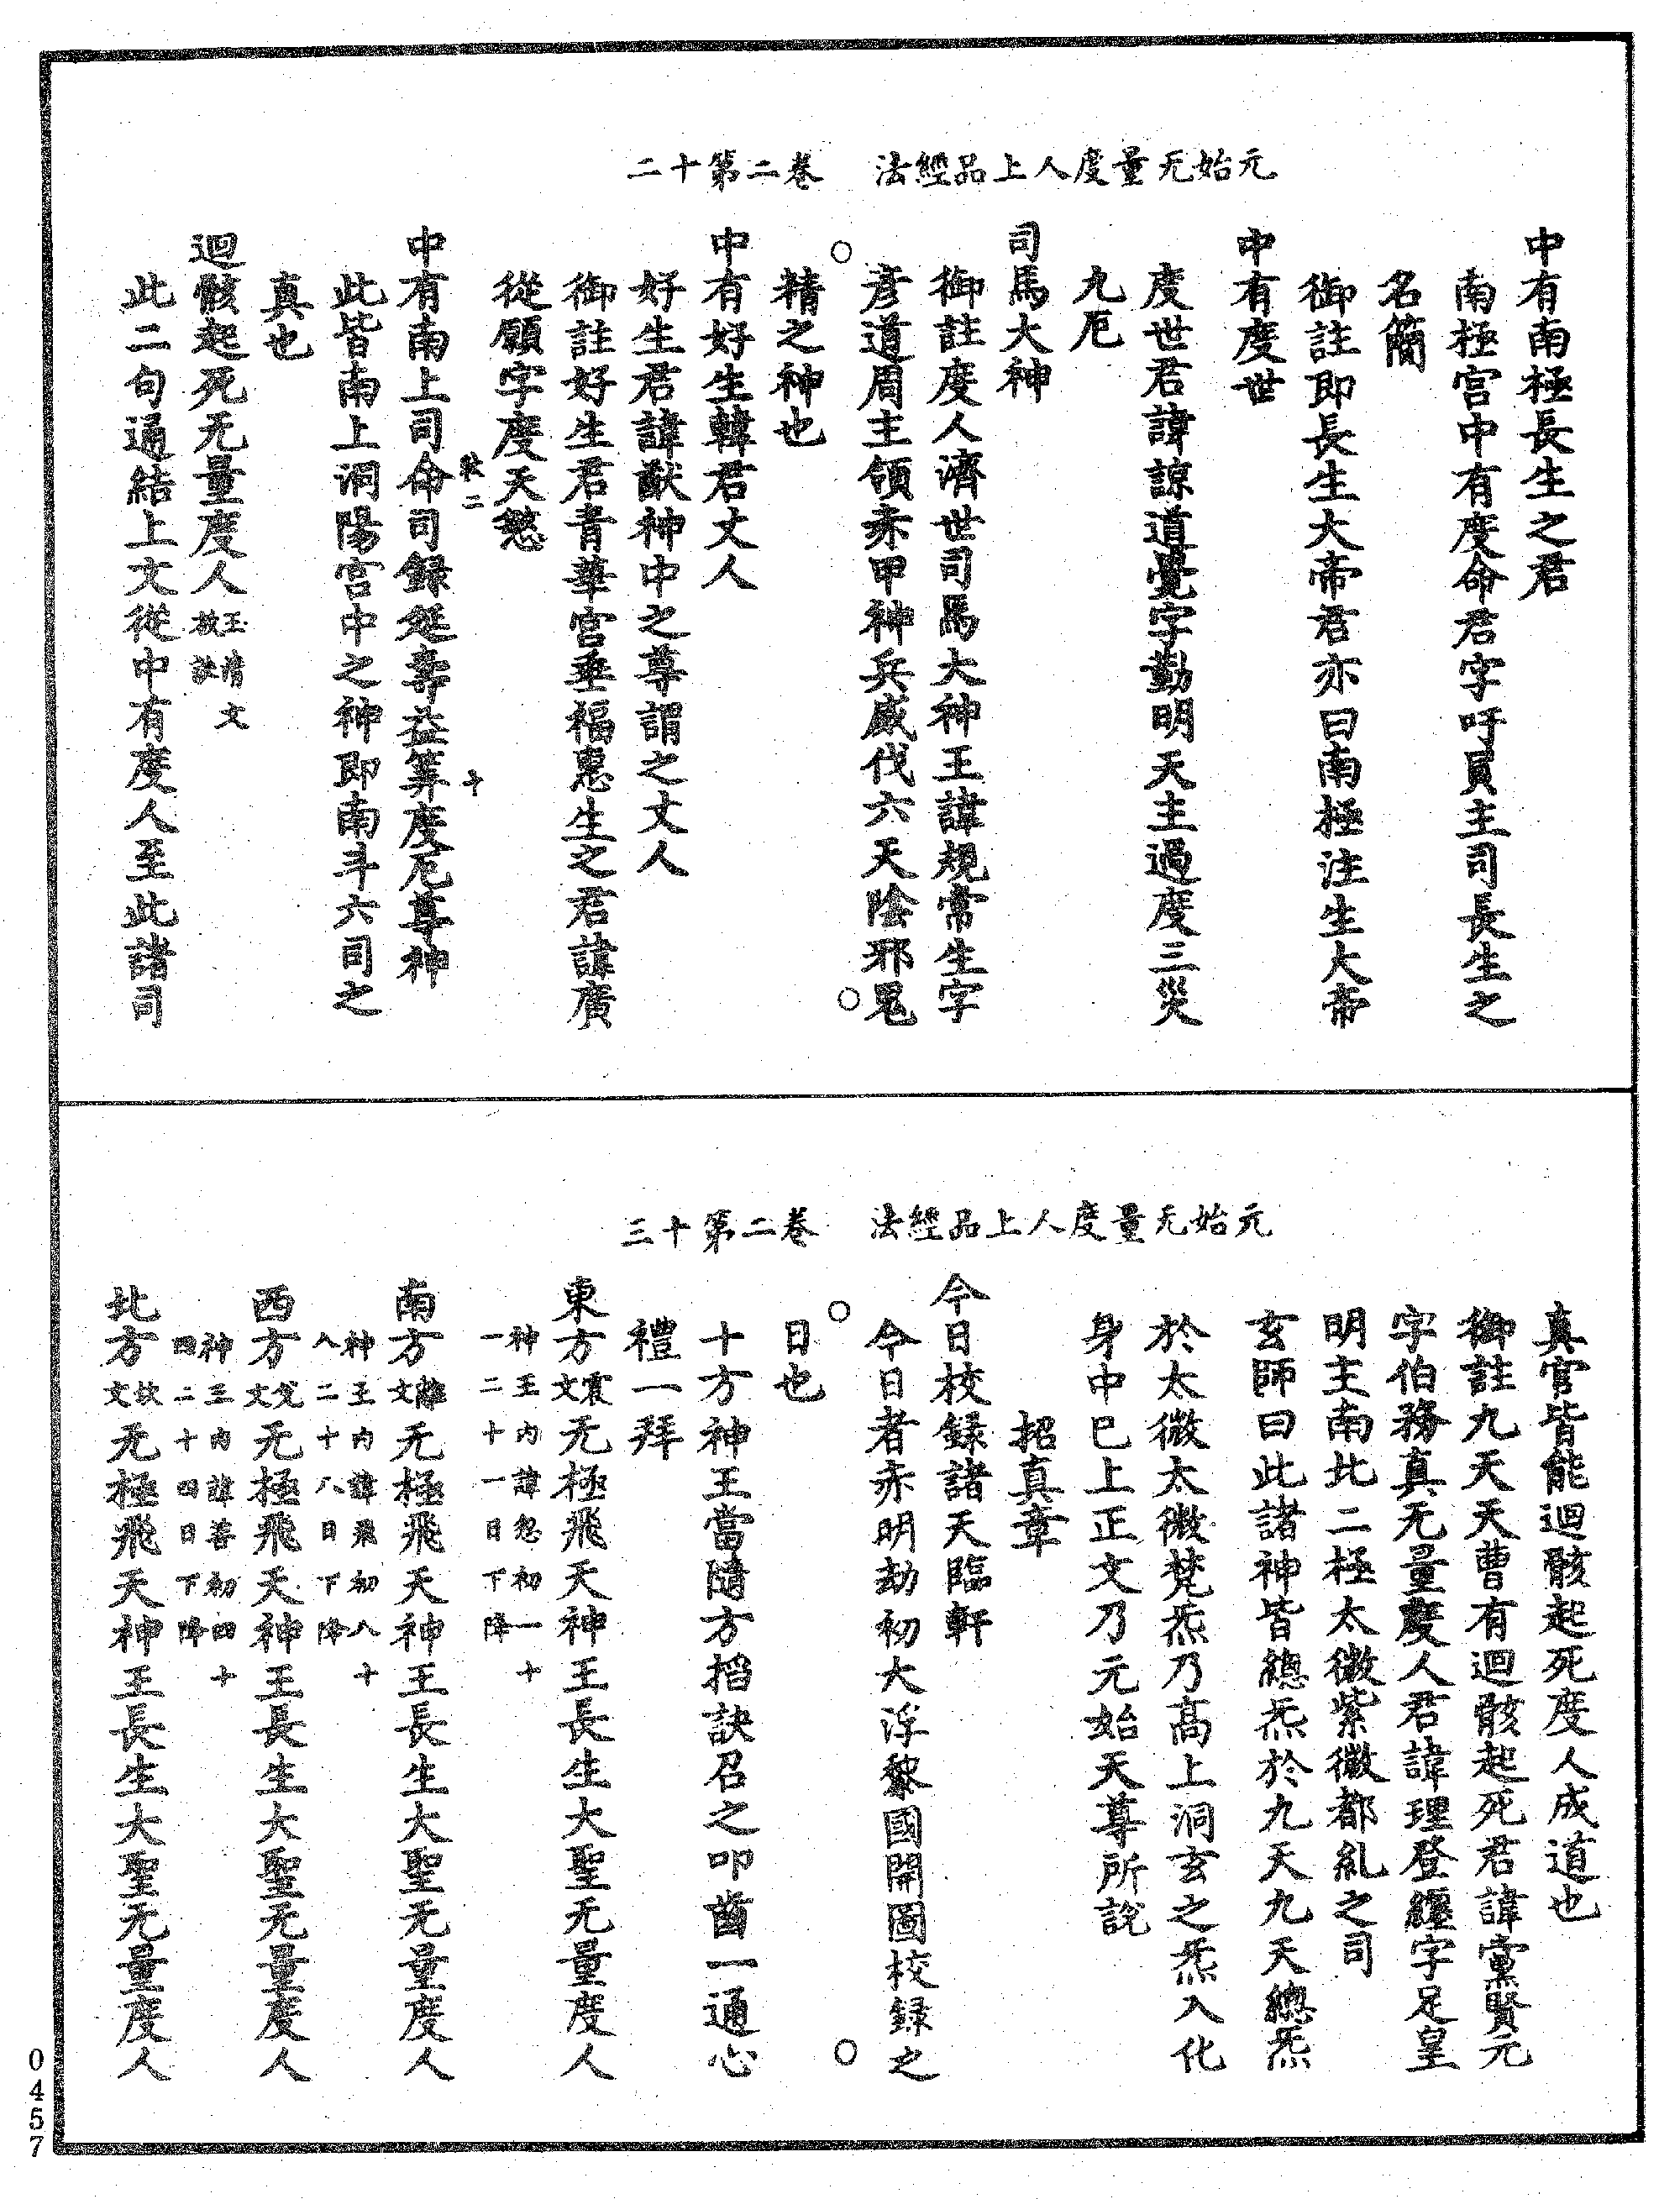 元始无量度人上品經法 卷二第十二
中有南極長生之君
南極宮中有度命君字吁員主司長生之
名簡
御註即長生大帝君亦曰南極注生大帝
中有度世
度世君諱諒道覺字勤明天主過度三災
九厄
司馬大神
御註度人濟世司馬大神王諱規常生字
彥道眉主領赤甲神兵威伐六天陰邪鬼
精之神也
中有好生韓君丈人
好生君諱猷神中之尊謂之丈人
御註好生君青華宮垂福惠生之君諱廣
從願字度天愁
欬二 十
中有南上司命司録延壽益筭度厄尊神
此皆南上洞陽宮中之神即南斗六司之
真也
迴骸起死无量度人 玉清文
此二句通結上文從中有度人至此諸司
元始无量度人上品經法 卷二第十三
真官皆能迴骸起死度人成道也
御註九天天曹有迴骸起死君諱黨賢元
字伯務真无量度人君諱理登纏字足皇
明主南北二極太微紫微都糺之司
玄師曰此諸神皆總炁於九天九天總炁
於太微太微梵炁乃高上洞玄之炁入化
身中已上正文乃元始天尊所說
招真章
今日校録諸天臨軒
今日者赤明劫初大浮黎國開圖校録之
日也
十方神王當隨方掐訣召之叩齒一通心
禮一拜
東方震文无極飛天神王長生大聖无量度人
神王内諱忽初一十
一二十一日下降
南方離文无極飛天神王長生大聖无量度人
神王内諱飛初八十
八二十八日下降
西方兌文无極飛天神王長生大聖无量度人
神王内諱善初四十
四二十四日下降
北方坎文无極飛天神王長生大聖无量度人
0457